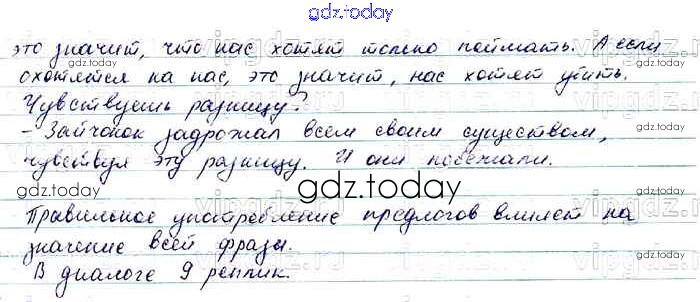 gdz.today
это значит, что нас хотят только поймать. А если
охотятся на нас, это значит, нас хотят убить.
Чувствуешь разницу?
- Зайчонок задрожал всем своим существом,
чувствуя эту разницу. И они побежали.
gdz.today
Правильное употребление предлогов влияет на
значение всей фразы.
В диалоге 9 реплик.
gdz.today